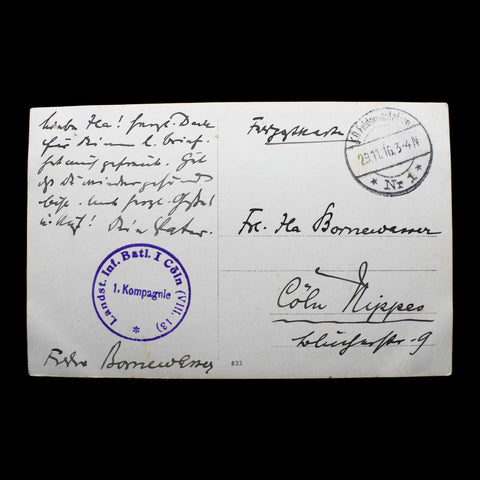 Liebe Ila! Herzl. Dank
für Deinen l. Brief.
Hat mich gefreut. Gut
daß Du wieder gesund
bist. Und herzl. Grüße
u. Kuß! Dein Vater.
Landst. Inf. Batl. I Cöln (VIII. 13)
1. Kompagnie
Bornewasser
Feldpostkarte
K.D. Feldpoststation
29.11.16. 3-4 N
* Nr 1 *
Frl. Ila Bornewasser
Cöln Nippes
Blücherstr. 9
833